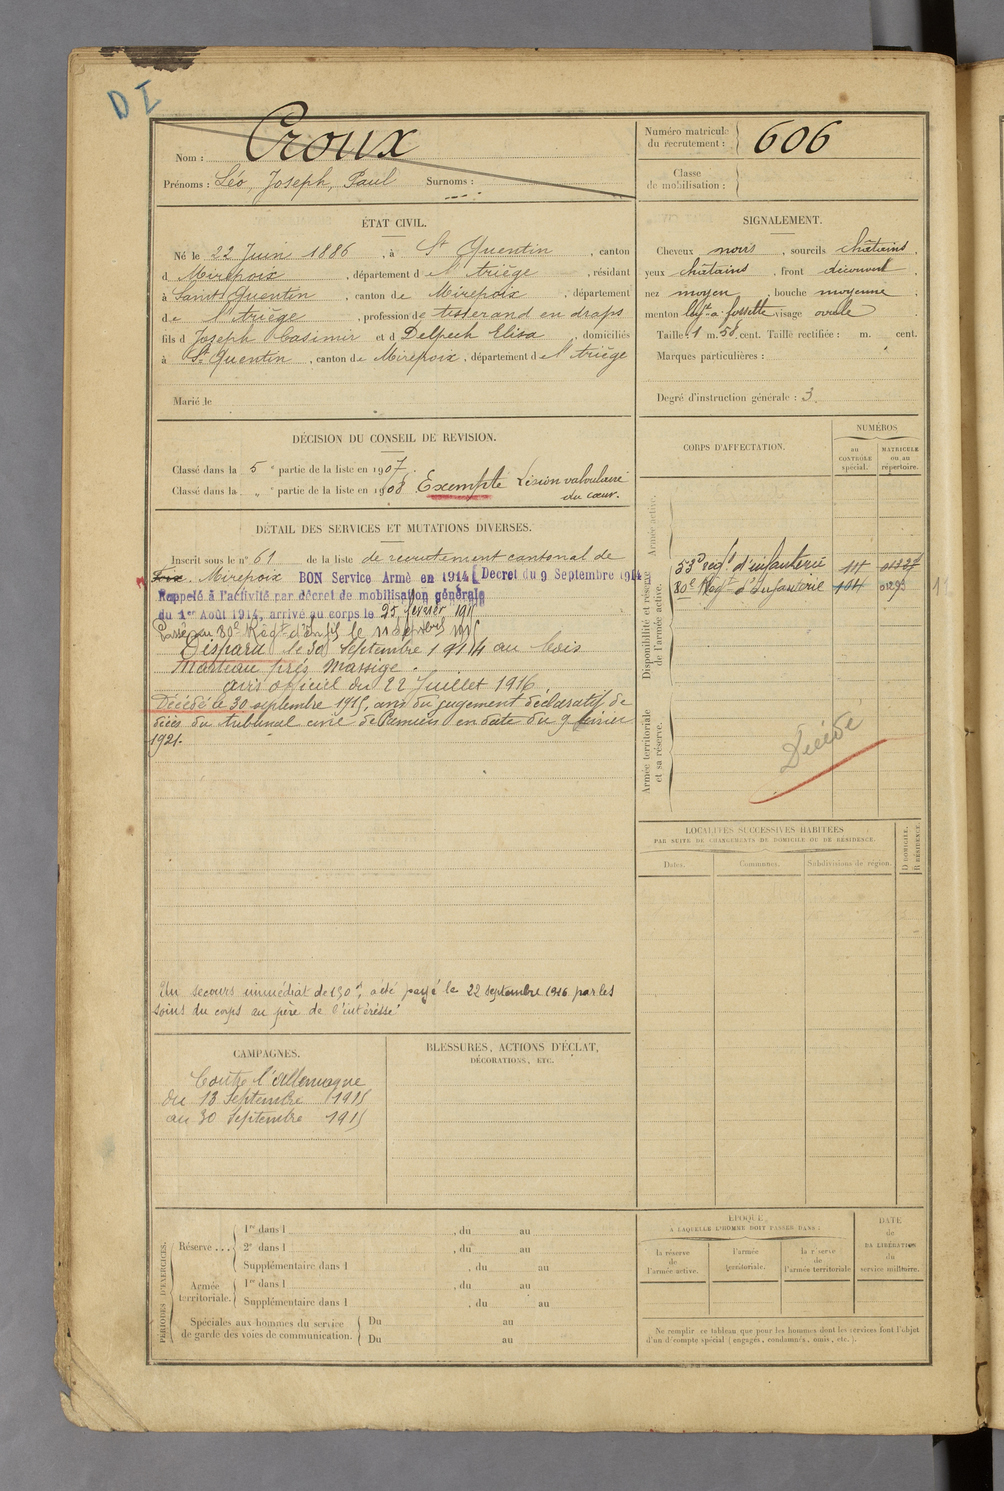 D I
Nom : Croux
Prénoms : Léo, Joseph, Paul Surnoms :
Numéro matricule du recrutement : 606
Classe de mobilisation :
ÉTAT CIVIL.
Né le 22 Juin 1886, à St Quentin, canton
d Mirepoix, département de l'Ariège, résidant
à Saint Quentin, canton de Mirepoix, département
de l'Ariège, profession de tisserand en draps
fils d Joseph Casimir et d Delpech Elisa, domiciliés
à St Quentin, canton de Mirepoix, département de l'Ariège
Marié le
SIGNALEMENT.
Cheveux noirs, sourcils châtains,
yeux châtains, front découvert,
nez moyen, bouche moyenne,
menton à fossette visage ovale
Taille : 1 m. 58 cent. Taille rectifiée : m. cent.
Marques particulières :
Degré d'instruction générale : 3.
DÉCISION DU CONSEIL DE REVISION.
Classé dans la 5e partie de la liste en 1907.
Classé dans la „ e partie de la liste en 1908 Exempté Lésion valvulaire
du cœur.
DÉTAIL DES SERVICES ET MUTATIONS DIVERSES.
Inscrit sous le n° 61 de la liste de recrutement cantonal de
Foix. Mirepoix BON Service Armé en 1914 Décret du 9 Septembre 1914
Rappelé à l'activité par décret de mobilisation générale
du 1er Août 1914, arrivé au corps le 25 février 1915
Passé au 80e Régt d'Infie le 1915
Disparu le 30 Septembre 1914 au bois
Marteau près Massige.
avis officiel du 22 Juillet 1916
Décédé le 30 septembre 1915, du jugement déclaratif de
décès du tribunal civil de Pamiers en date du 9 février
1921.
Un secours immédiat de 150f, a été payé le 22 septembre 1916 par les
soins du corps au père de l'intéressé
CORPS D'AFFECTATION.
NUMÉROS
au CONTRÔLE spécial.
MATRICULE ou au répertoire.
Armée active.
Disponibilité et réserve de l'armée active.
53e régt d'infanterie
80e Régt d'Infanterie 01293
Armée territoriale et sa réserve.
Décédé
LOCALITÉS SUCCESSIVES HABITÉES
PAR SUITE DE CHANGEMENTS DE DOMICILE OU DE RÉSIDENCE.
Dates. Communes. Subdivisions de région.
D DOMICILE, R RÉSIDENCE.
CAMPAGNES.
Contre l'Allemagne
du 13 Septembre 1915
au 30 Septembre 1915
BLESSURES, ACTIONS D'ÉCLAT,
DÉCORATIONS, ETC.
PÉRIODES D'EXERCICES.
Réserve ...
1re dans l , du au
2e dans l , du au
Supplémentaire dans l , du au
Armée territoriale.
1re dans l , du au
Supplémentaire dans l , du au
Spéciales aux hommes du service
de garde des voies de communication.
Du au
Du au
ÉPOQUE
À LAQUELLE L'HOMME DOIT PASSER DANS :
la réserve de l'armée active.
l'armée territoriale.
la réserve de l'armée territoriale
DATE de LA LIBÉRATION du service militaire.
Ne remplir ce tableau que pour les hommes dont les services font l'objet
d'un décompte spécial (engagés, condamnés, omis, etc.).